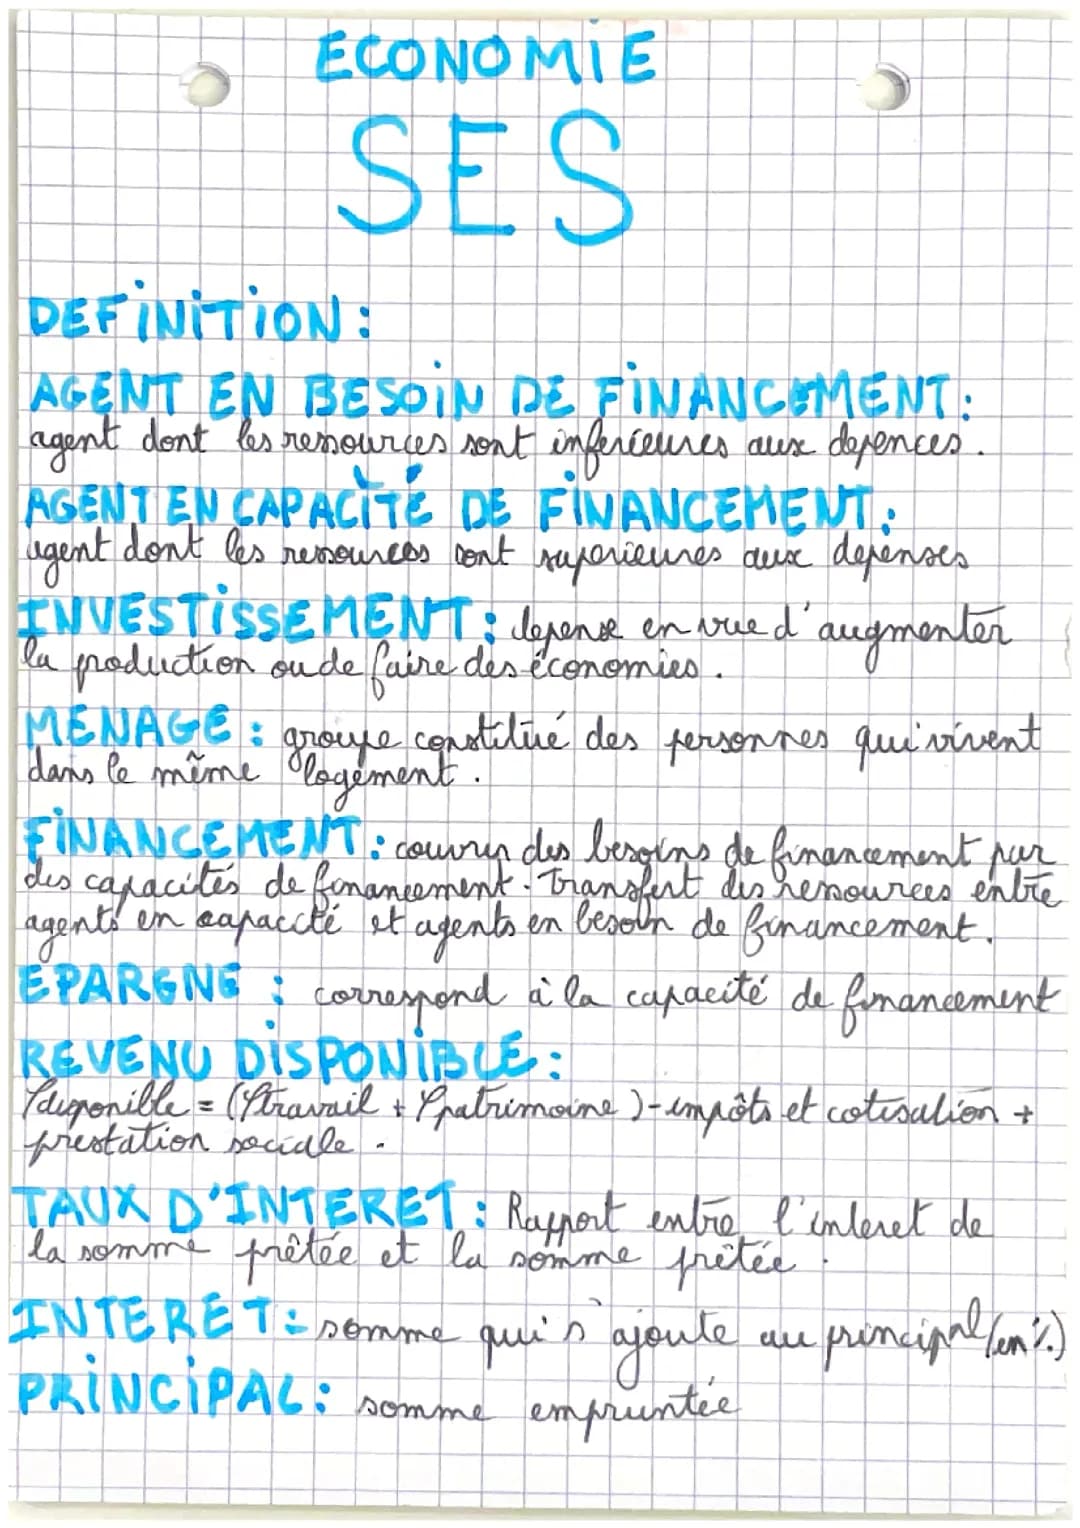 ECONOMIE
SES
DEFINITION :
AGENT EN BESOIN DE FINANCEMENT :
agent dont les ressources sont inferieures aux depences .
AGENT EN CAPACITÉ DE FINANCEMENT :
agent dont les ressources sont superieures aux depenses
INVESTISSEMENT : depense en vue d'augmenter
la production ou de faire des économies .
MENAGE : groupe constitué des personnes qui vivent
dans le même logement .
FINANCEMENT : couvrir des besoins de financement par
des capacités de financement . Transfert des ressources entre
agents en capacité et agents en besoin de financement .
EPARGNE : correspond à la capacité de financement
REVENU DISPONIBLE :
Ydisponible = (Ytravail + Ypatrimoine) - impôts et cotisation +
prestation sociale .
TAUX D'INTERET : Rapport entre l'interet de
la somme prêtée et la somme prêtée .
INTERET : somme qui s'ajoute au principal (en %)
PRINCIPAL : somme empruntée